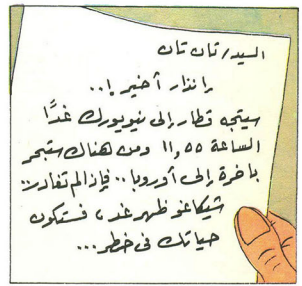 السيد/ تان تان
إنذار أخير!..
سيتجه قطار إلى نيويورك غدًا
الساعة ١١,٥٥ ومن هناك ستبحر
باخرة إلى أوروبا.. فإذا لم تغادر..
شيكاغو ظهر غد، فستكون
حياتك فى خطر...